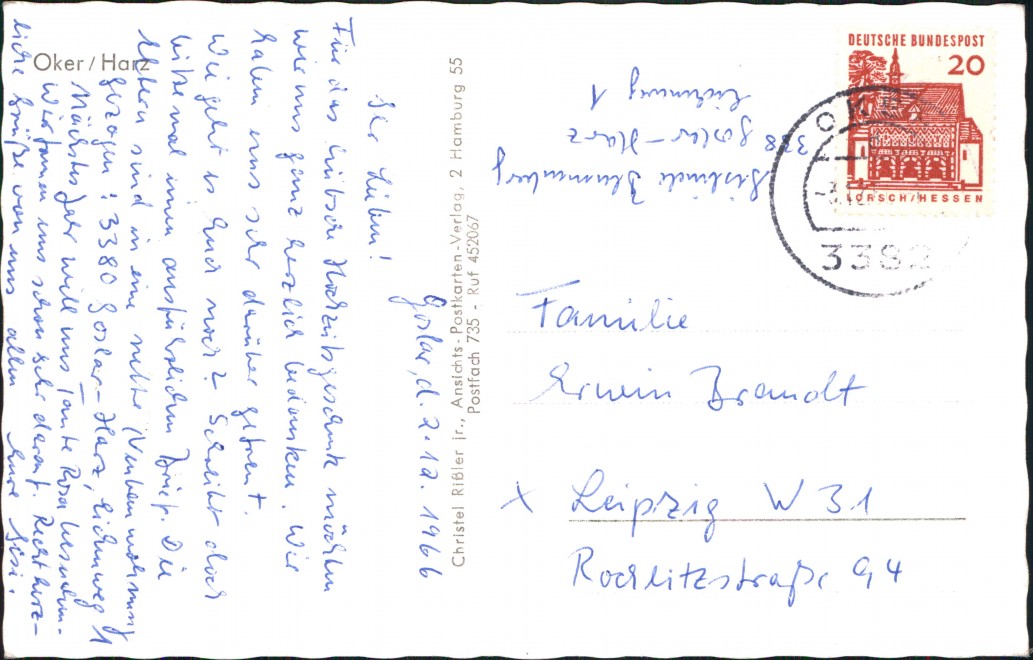 Oker / Harz
Goslar, d. 2.12. 1966
Ihr Lieben!
Für das hübsche Hochzeitsgeschenk möchten
wir uns ganz herzlich bedanken. Wir
haben uns sehr darüber gefreut.
Wie geht es Euch noch? Schreibt doch
bitte mal einen ausführlichen Brief. Die
Eltern sind in eine nette Neubauwohnung
gezogen: 3380 Goslar-Harz, Eichenweg 1
Nächstes Jahr will uns Tante Rosa besuchen.
Wir freuen uns schon sehr darauf. Recht herz-
liche Grüße von uns allen Eure Gisi.
Christel Rißler jr., Ansichts-Postkarten-Verlag, 2 Hamburg 55
Postfach 735 - Ruf 452067
Blumenberg
338 Goslar-Harz
Eichenweg 1
DEUTSCHE BUNDESPOST
20
LORSCH/HESSEN
OKER
3382
Familie
Erwin Brandt
x Leipzig W 31
Rochlitzstraße 94